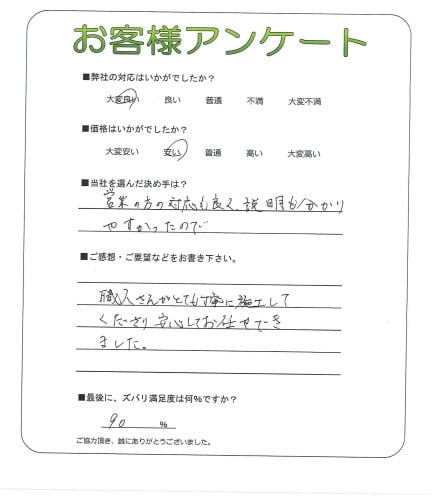 お客様アンケート
■弊社の対応はいかがでしたか?
大変良い 良い 普通 不満 大変不満
■価格はいかがでしたか?
大変安い 安い 普通 高い 大変高い
■当社を選んだ決め手は?
営業の方の対応も良く、説明も分かり
やすかったので
■ご感想・ご要望などをお書き下さい。
職人さんがとても丁寧に施工して
くださり安心してお任せでき
ました。
■最後に、ズバリ満足度は何%ですか?
90 %
ご協力頂き、誠にありがとうございました。